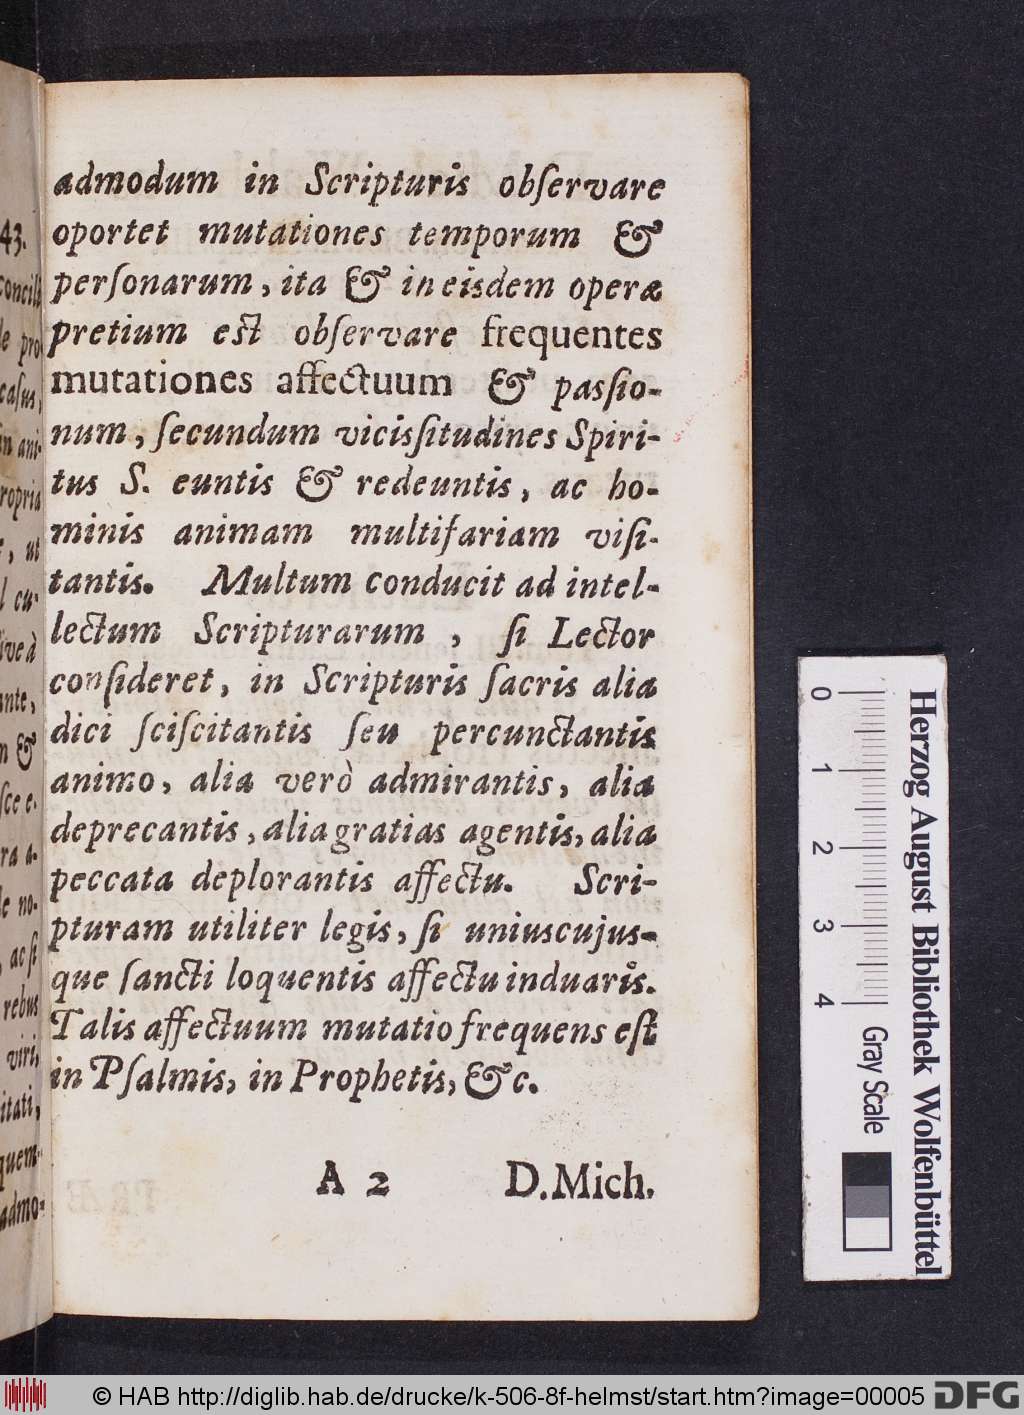 admodum in Scripturis obſervare
oportet mutationes temporum &
perſonarum, ita & in eisdem operæ
pretium est obſervare frequentes
mutationes affectuum & paſſio-
num, ſecundum vicisſitudines Spiri-
tus S. euntis & redeuntis, ac ho-
minis animam multifariam viſi-
tantis. Multum conducit ad intel-
lectum Scripturarum, ſi Lector
conſideret, in Scripturis ſacris alia
dici ſciſcitantis ſeu percunctantis
animo, alia verò admirantis, alia
deprecantis, alia gratias agentis, alia
peccata deplorantis affectu. Scri-
pturam utiliter legis, ſi uniuscujus-
que ſancti loquentis affectu induaris.
Talis affectuum mutatio frequens eſt
in Pſalmis, in Prophetis, &c.
A 2 D. Mich.
43.
concili
pro
caſus,
in ani-
ropria
, ut
l cu-
ive à
ante,
n &
ſce e-
ra a-
e no-
, ac ſi
rebus
viri,
itati,
quem-
admo-
0 1 2 3 4
Gray Scale
Herzog August Bibliothek Wolfenbüttel
© HAB http://diglib.hab.de/drucke/k-506-8f-helmst/start.htm?image=00005 DFG